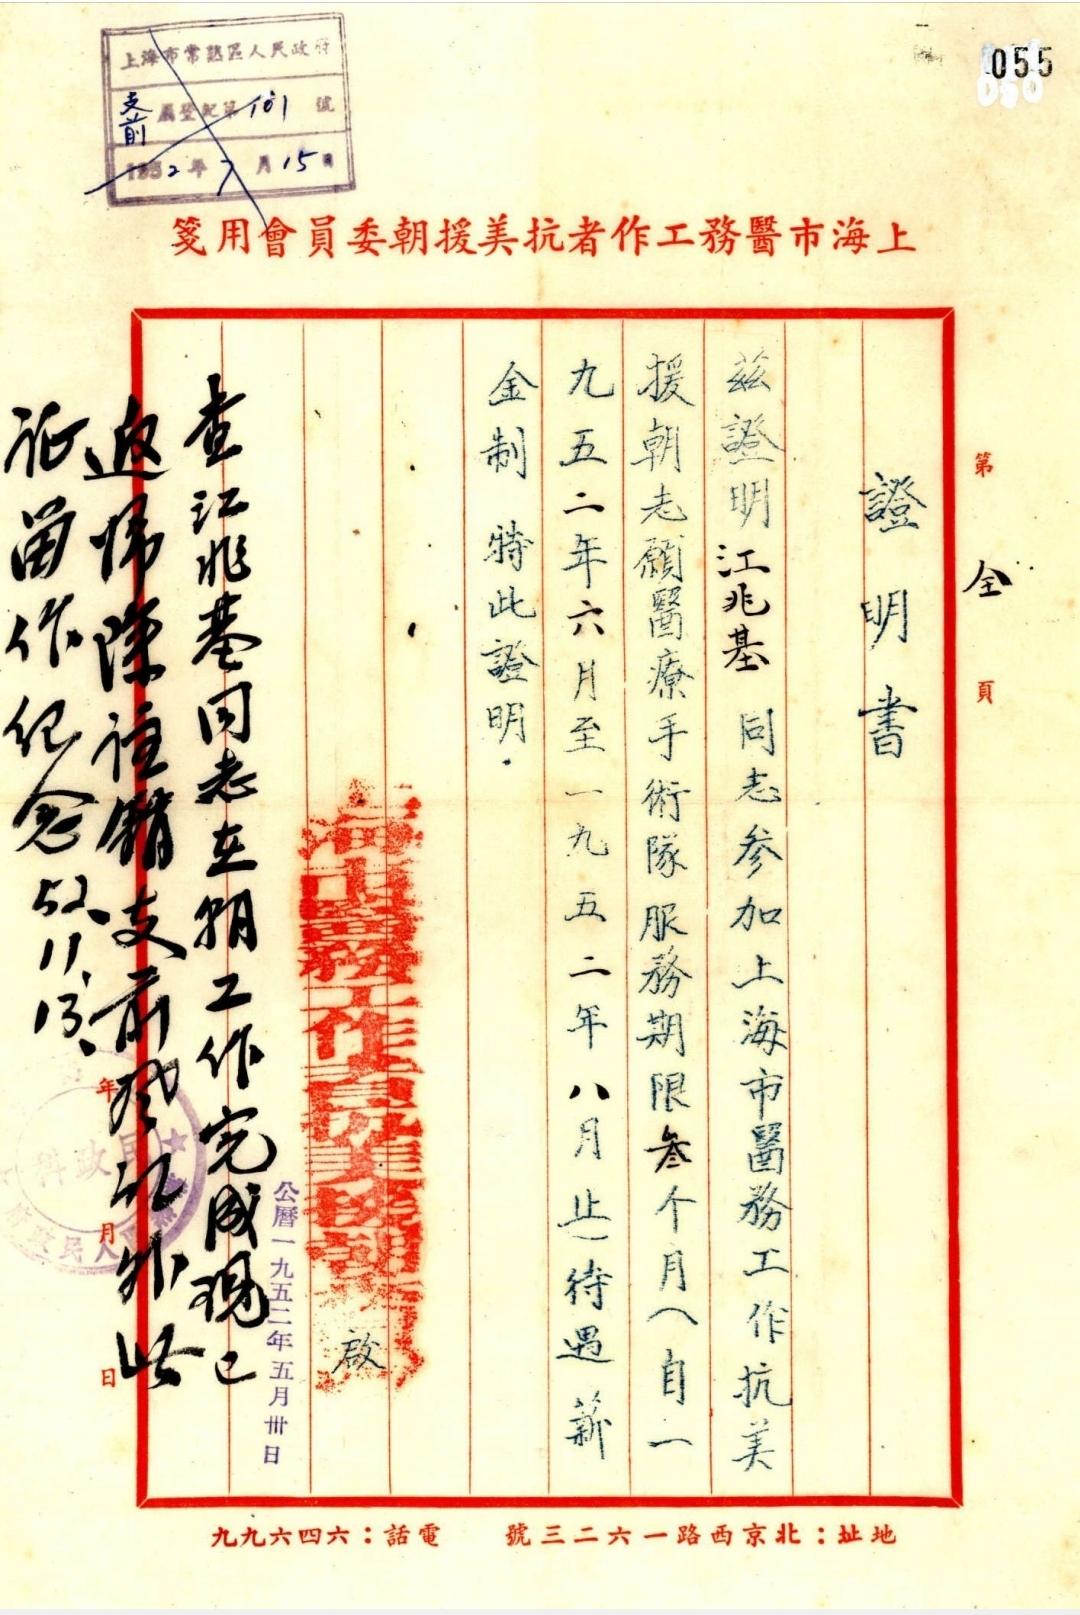 055
上海市常熟區人民政府
支前屬登記第101號
1952年7月15日
上海市醫務工作者抗美援朝委員會用箋
第全頁
證明書
茲證明江兆基同志参加上海市醫務工作抗美
援朝志願醫療手術隊服務期限叁个月(自一
九五二年六月至一九五二年八月止)待遇薪
金制 特此證明.
上海市醫務工作者抗美援朝
啟
公曆一九五二年五月卅日
年月日
查江兆基同志在朝工作完成現已
返滬除註銷支前登記外此
証留作纪念52.11.13.
民政科
地址:北京西路一六二三號 電話:六四六九九